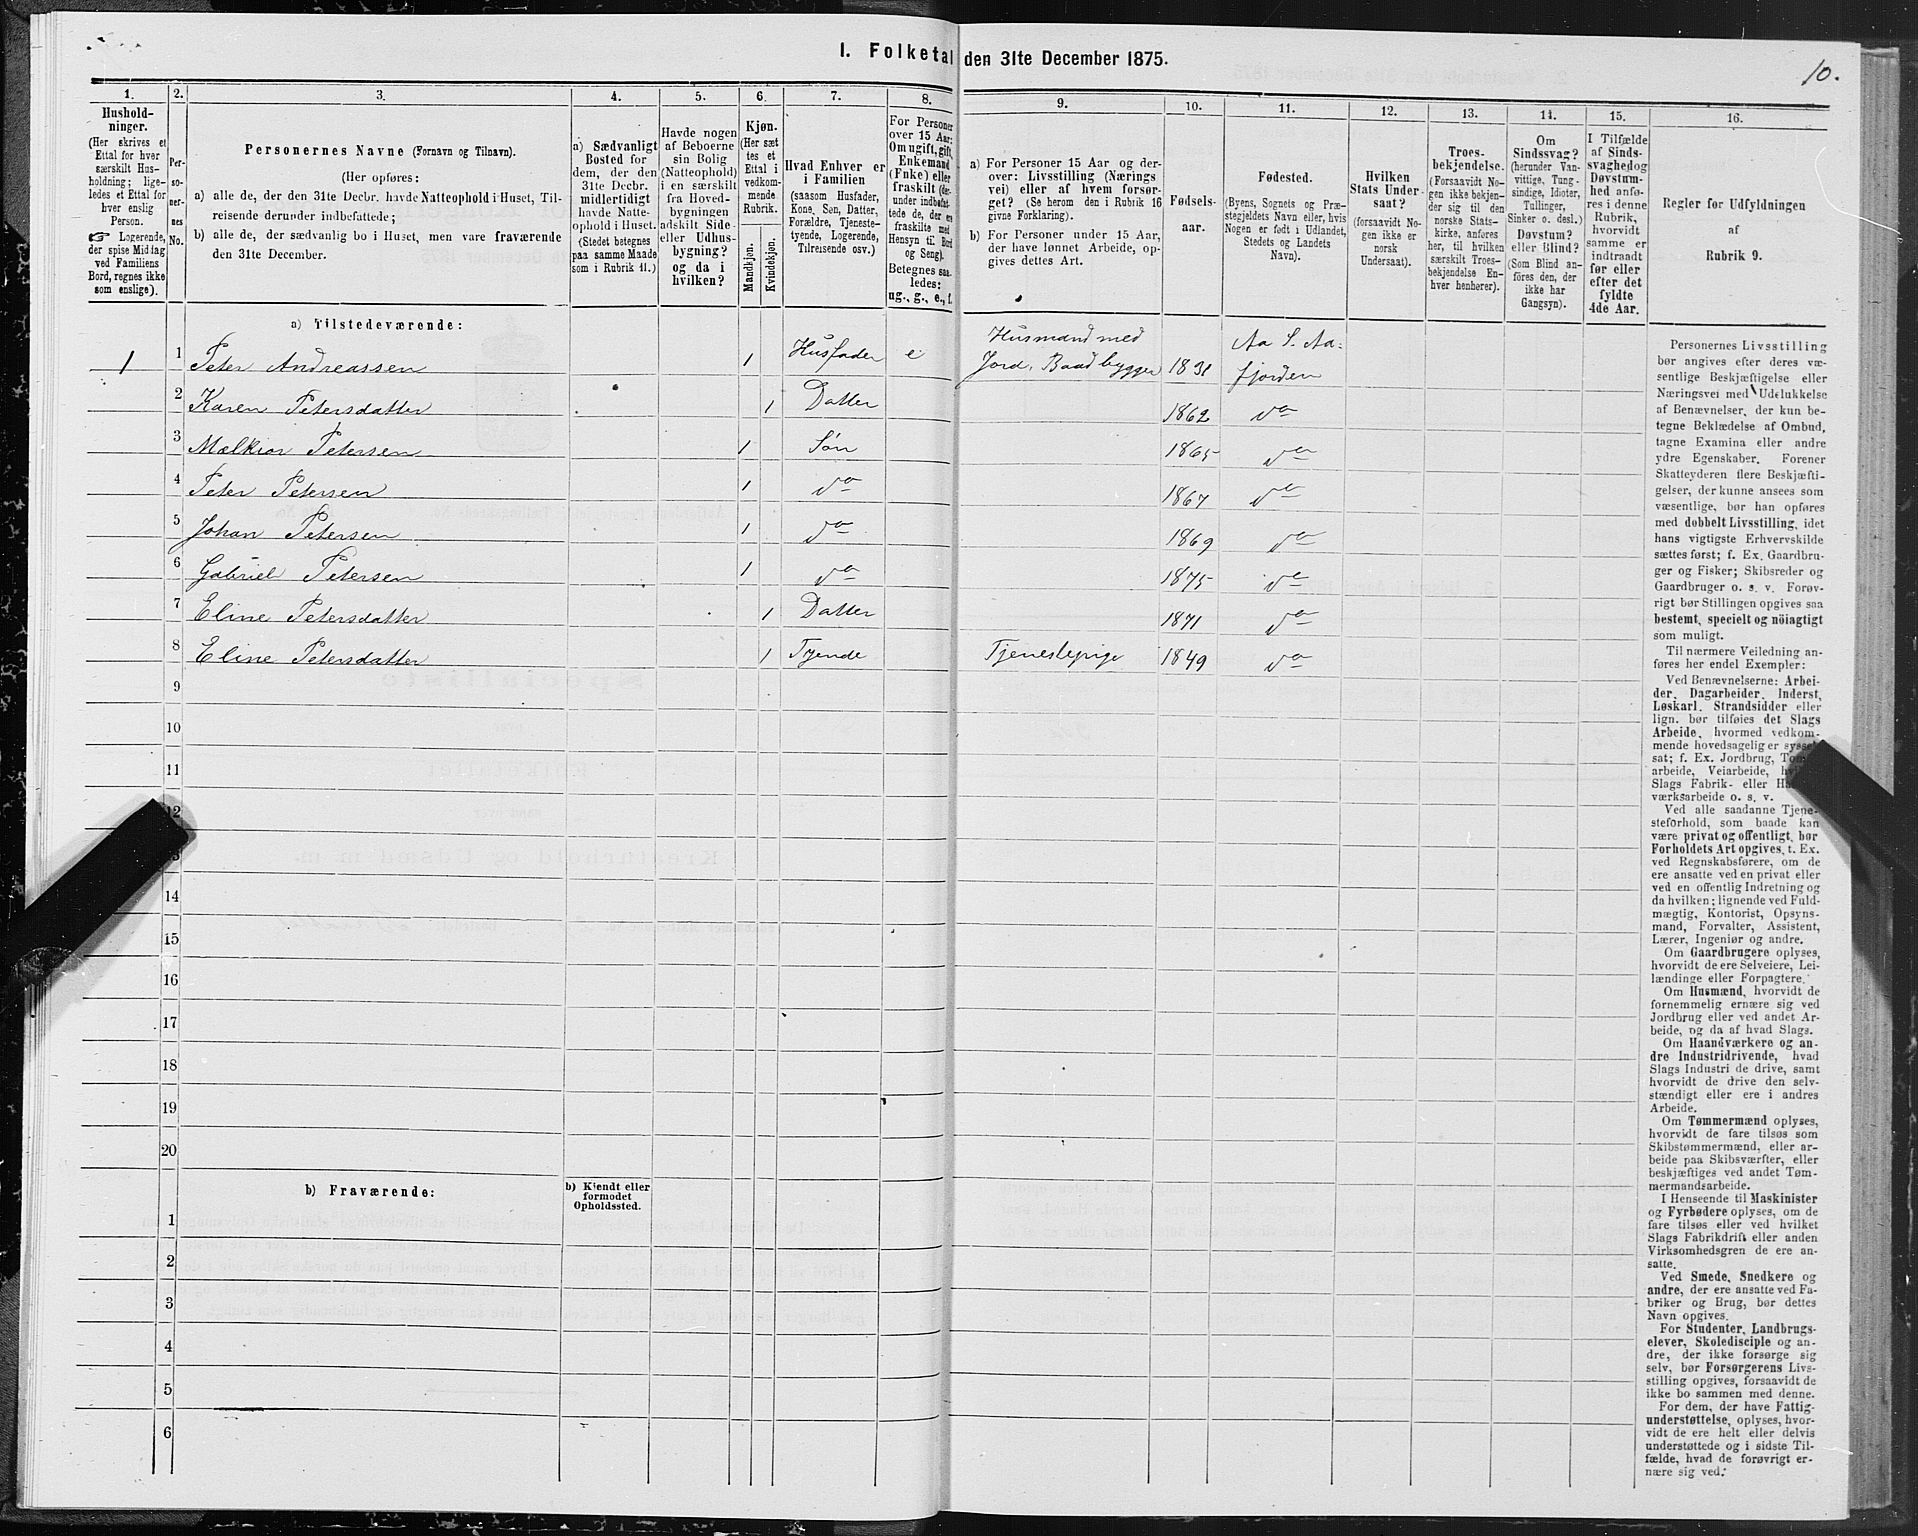 I. Folketal den 31te December 1875.
10.
1.
Hushold-
ninger.
(Her skrives et
Ettal for hver
særskilt Hus-
holdning; lige-
ledes et Ettal for
hver enslig
Person.
☞ Logerende,
der spise Middag
ved Familiens
Bord, regnes ikke
som enslige).
2.
Per-
so-
ner-
nes
No.
3.
Personernes Navne (Fornavn og Tilnavn).
(Her opføres:
a) alle de, der den 31te Decbr. havde Natteophold i Huset, Til-
reisende derunder indbefattede;
b) alle de, der sædvanlig bo i Huset, men vare fraværende
den 31te December.
4.
a) Sædvanligt
Bosted for
dem, der den
31te Decbr.
midlertidigt
havde Natte-
ophold i Huset.
(Stedet betegnes
paa samme Maade
som i Rubrik 11.)
5.
Havde nogen
af Beboerne
sin Bolig
(Natteophold)
i en særskilt
fra Hoved-
bygningen
adskilt Side-
eller Udhus-
bygning?
og da i
hvilken?
6.
Kjøn.
(Her sæt-
tes et
Ettal i
vedkom-
mende
Rubrik.
Mandkjøn.
Kvindekjøn.
7.
Hvad Enhver er
i Familien
(saasom Husfader,
Kone, Søn, Datter,
Forældre, Tjeneste-
tyende, Logerende,
Tilreisende osv.)
8.
For Personer
over 15 Aar:
Om ugift, gift,
Enkemand
(Enke) eller
fraskilt (der-
under indbefat-
tede de, der ere
fraskilte med
Hensyn til Bord
og Seng).
Betegnes saa-
ledes:
ug., g., e., f.
9.
a) For Personer 15 Aar og der-
over: Livsstilling (Nærings-
vei) eller af hvem forsør-
get? (Se herom den i Rubrik 16
givne Forklaring).
b) For Personer under 15 Aar,
der have lønnet Arbeide, op-
gives dettes Art.
10.
Fødsels-
aar.
11.
Fødested.
(Byens, Sognets og Præ-
stegjeldets Navn eller, hvis
Nogen er født i Udlandet,
Stedets og Landets
Navn).
12.
Hvilken
Stats Under-
saat?
(forsaavidt No-
gen ikke er
norsk
Undersaat).
13.
Troes-
bekjendelse.
(Forsaavidt No-
gen ikke bekjen-
der sig til den
norske Stats-
kirke, anføres
her, til hvilken
særskilt Troes-
bekjendelse En-
hver henhører).
14.
Om
Sindssvag?
(herunder Van-
vittige, Tung-
sindige, Idioter,
Tullinger,
Sinker o. desl.)
Døvstum?
eller Blind?
(Som Blind an-
føres den, der
ikke har
Gangsyn).
15.
I Tilfælde
af Sinds-
svaghed og
Døvstum-
hed anfø-
res i denne
Rubrik,
hvorvidt
samme er
indtraadt
før eller
efter det
fyldte
4de Aar.
16.
Regler for Udfyldningen
af
Rubrik 9.
a) Tilstedeværende:
1 1 Peter Andreassen 1 Husfader e Husmand med
Jord, Baadbygger 1831 Aa S. Aa-
fjorden
2 Karen Petersdatter 1 Datter 1862 do
3 Mælkior Petersen 1 Søn 1865 do
4 Peter Petersen 1 do 1867 do
5 Johan Petersen 1 do 1869 do
6 Gabriel Petersen 1 do 1875 do
7 Eline Petersdatter 1 Datter 1871 do
8 Eline Petersdatter 1 Tyende Tjenestepige 1849 do
9
10
11
12
13
14
15
16
17
18
19
20
b) Fraværende:
b) Kjendt eller
formodet
Opholdssted.
1
2
3
4
5
6
Personernes Livsstilling
bør angives efter deres væ-
sentlige Beskjæftigelse eller
Næringsvei med Udelukkelse
af Benævnelser, der kun be-
tegne Beklædelse af Ombud,
tagne Examina eller andre
ydre Egenskaber. Forener
Skatteyderen flere Beskjæfti-
gelser, der kunne ansees som
væsentlige, bør han opføres
med dobbelt Livsstilling, idet
hans vigtigste Erhvervskilde
sættes først; f. Ex. Gaardbru-
ger og Fisker; Skibsreder og
Gaardbruger o. s. v. Forøv-
rigt bør Stillingen opgives saa
bestemt, specielt og nöiagtigt
som muligt.
Til nærmere Veiledning an-
føres her endel Exempler:
Ved Benævnelserne: Arbei-
der, Dagarbeider, Inderst,
Løskarl, Strandsidder eller
lign. bør tilføies det Slags
Arbeide, hvormed vedkom-
mende hovedsagelig er syssel-
sat; f. Ex. Jordbrug, Tom-
arbeide, Veiarbeide, hv
Slags Fabrik- eller Ha
værksarbeide o. s. v.
Ved alle saadanne Tjene-
steforhold, som baade kan
være privat og offentligt, bør
Forholdets Art opgives, t. Ex.
ved Regnskabsførere, om de
ere ansatte ved en privat eller
ved en offentlig Indretning og
da hvilken; lignende ved Fuld-
mægtig, Kontorist, Opsyns-
mand, Forvalter, Assistent,
Lærer, Ingeniør og andre.
Om Gaardbrugere oplyses,
hvorvidt de ere Selveiere, Lei-
lændinge eller Forpagtere.
Om Husmænd, hvorvidt de
fornemmelig ernære sig ved
Jordbrug eller ved andet Ar-
beide, og da af hvad Slags.
Om Haandværkere og an-
dre Industridrivende, hvad
Slags Industri de drive, samt
hvorvidt de drive den selv-
stændigt eller ere i andres
Arbeide.
Om Tømmermænd oplyses,
hvorvidt de fare tilsøs som
Skibstømmermænd, eller ar-
beide paa Skibsværfter, eller
beskjæftiges ved andet Tøm-
mermandsarbeide.
I Henseende til Maskinister
og Fyrbødere oplyses, om de
fare tilsøs eller ved hvilket
Slags Fabrikdrift eller anden
Virksomhedsgren de ere an-
satte.
Ved Smede, Snedkere og
andre, der ere ansatte ved Fa-
briker og Brug, bør dettes
Navn opgives.
For Studenter, Landbrugs-
elever, Skoledisciple og an-
dre, der ikke forsørge sig
selv, bør Forsørgerens Livs-
stilling opgives, forsaavidt de
ikke bo sammen med denne.
For dem, der have Fattig-
understøttelse, oplyses, hvor-
vidt de ere helt eller delvis
understøttede og i sidste Til-
fælde, hvad de forøvrigt er-
nære sig ved.